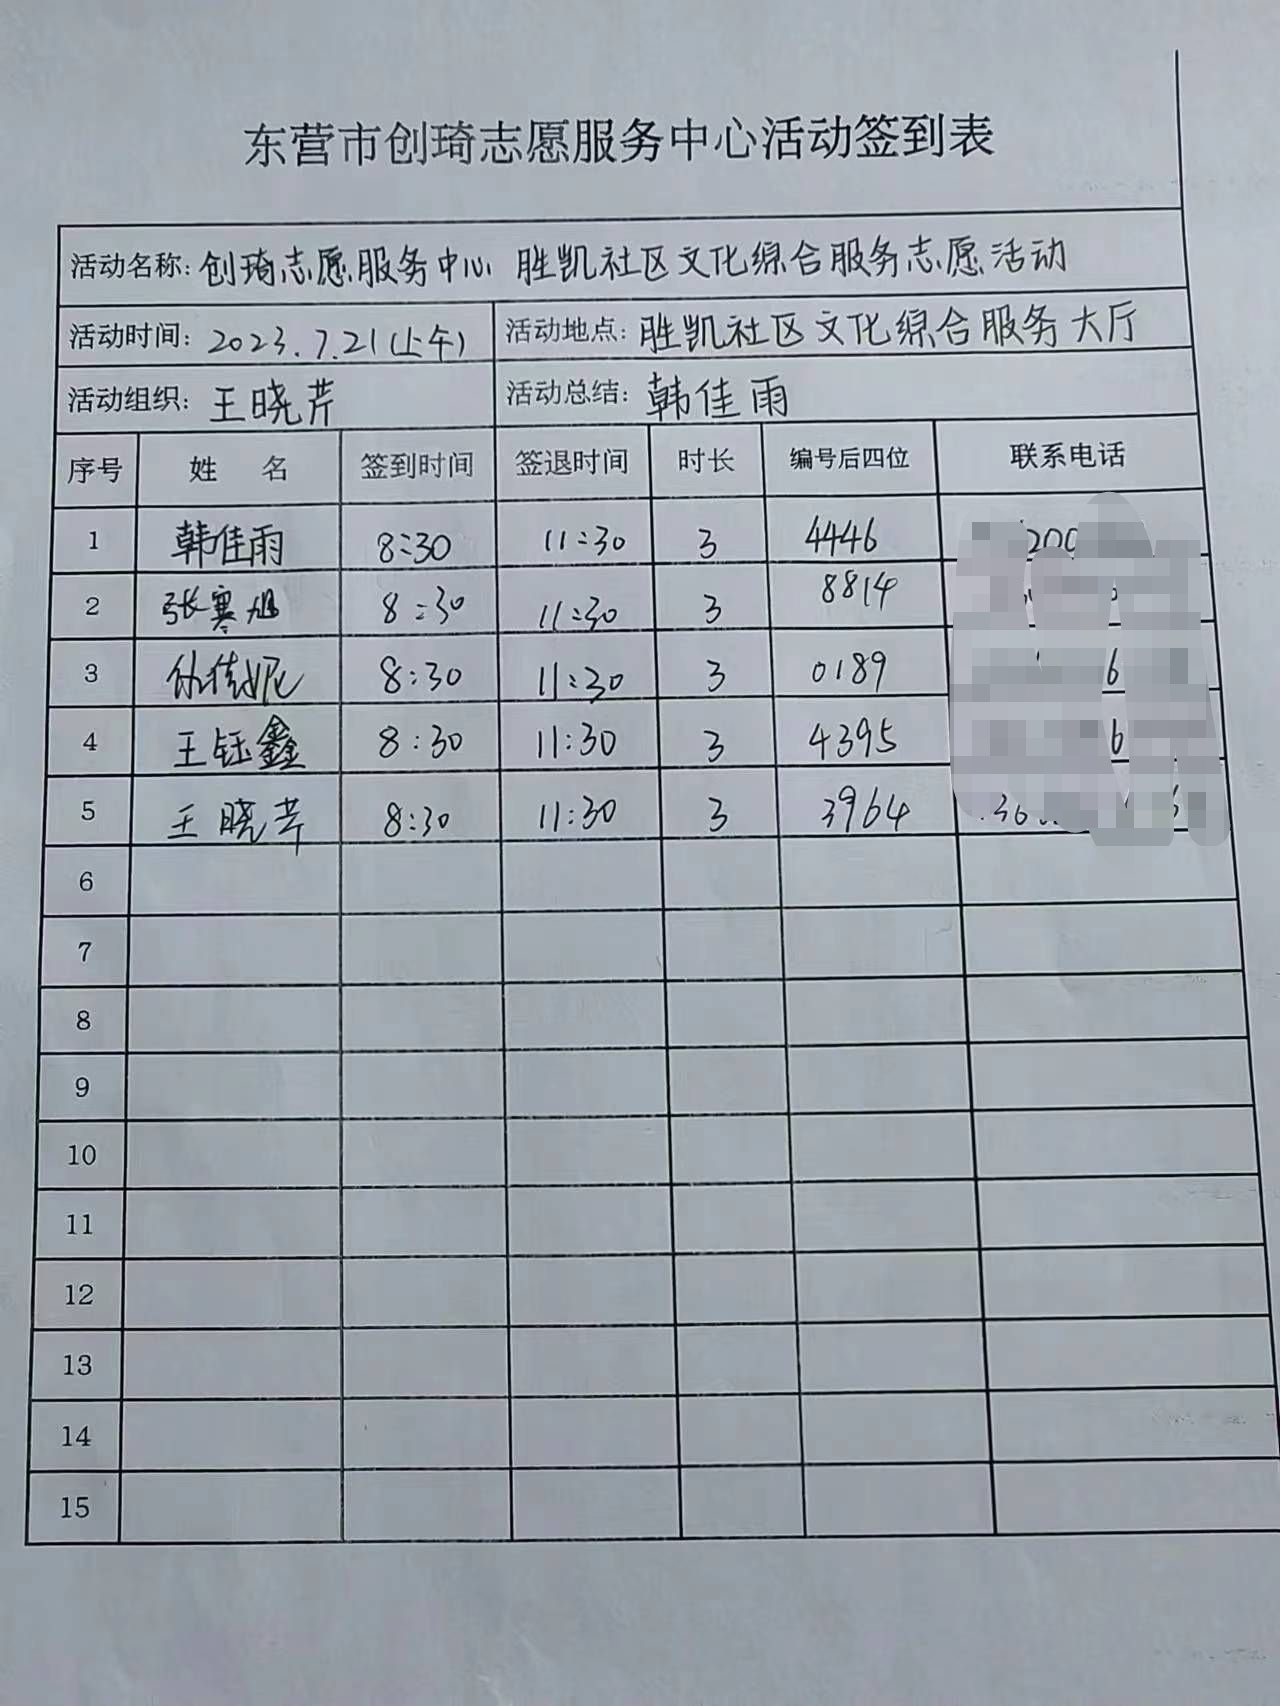 东营市创琦志愿服务中心活动签到表
活动名称: 创琦志愿服务中心 胜凯社区文化综合服务志愿活动
活动时间: 2023.7.21(上午) 活动地点: 胜凯社区文化综合服务大厅
活动组织: 王晓芹 活动总结: 韩佳雨
序号 姓 名 签到时间 签退时间 时长 编号后四位 联系电话
1 韩佳雨 8:30 11:30 3 4446
2 张寒旭 8:30 11:30 3 8814
3 8:30 11:30 3 0189
4 王钰鑫 8:30 11:30 3 4395
5 王晓芹 8:30 11:30 3 3964
6
7
8
9
10
11
12
13
14
15